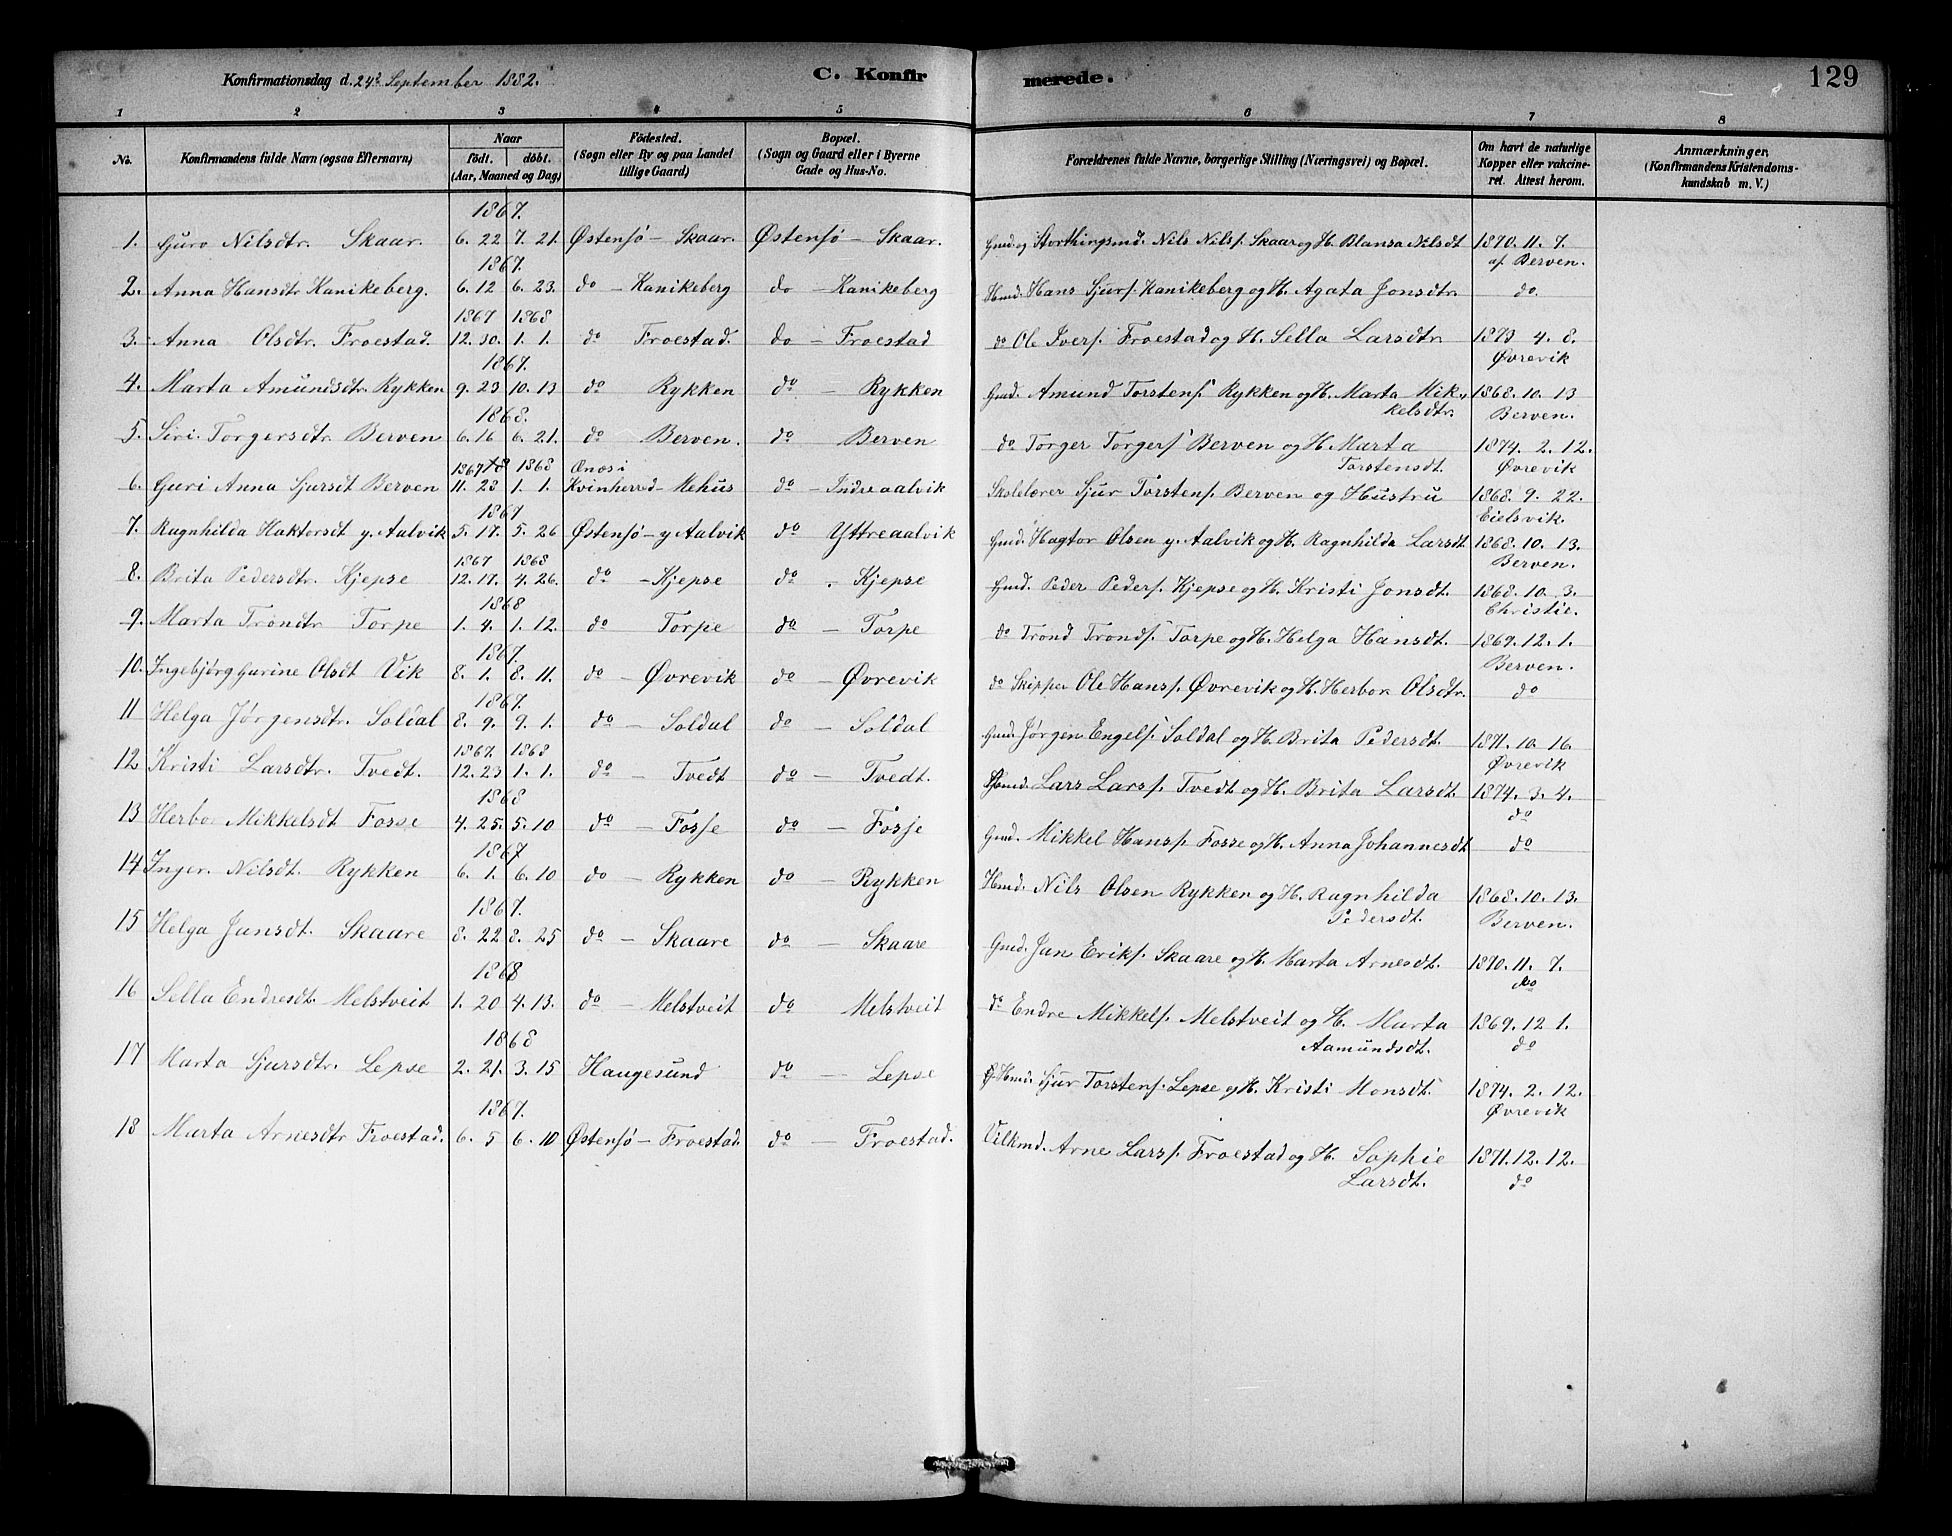 Konfirmationsdag d. 24de September 1882. C. Konfirmerede. 129
1 2 3 4 5 6 7 8
No. Konfirmandens fulde Navn (ogsaa Efternavn) Naar födt. döbt. (Aar, Maaned og Dag) Födested. (Sogn eller By og paa Landet tillige Gaard) Bopæl. (Sogn og Gaard eller i Byerne Gade og Hus-No. Forældrenes fulde Navne, borgerlige Stilling (Næringsvei) og Bopæl. Om havt de naturlige Kopper eller vakcineret. Attest herom. Anmærkninger, (Konfirmandens Kristendomskundskab m. V.)
1867.
1. Guro Nilsdtr. Skaar. 6. 22 7. 21. Østensø – Skaar. Østensø – Skaar. Gmd. og Storthingsmd. Nils Nilss. Skaar og H. Blansa Nilsdt 1870. 11. 7.
af Berven.
1867.
2. Anna Hansdtr Kanikeberg. 6. 12 6. 23. do – Kanikeberg do – Kanikeberg Hmd. Hans Sjurs. Kanikeberg og H. Agata Jonsdtr. do.
1867 1868
3. Anna Olsdtr. Froestad. 12. 30. 1. 1. do Froestad. do – Froestad do Ole Ivers. Froestad og H. Sella Larsdtr. 1873 4. 8.
Øvrevik
1867.
4. Marta Amundsdtr. Rykken 9. 23 10. 13 do Rykken do – Rykken Gmd. Amund Torstens. Rykken og H. Marta Mik-
kelsdtr. 1868. 10. 13
Berven.
1868.
5. Siri Torgersdtr Berven 6. 16 6. 21. do Berven. do Berven do Torger Torgers. Berven og H. Marta
Torstensdt. 1874. 2. 12.
Øvrevik
1867 1868 Ænæs i
6. Guri Anna Sjursdt Berven 11. 23 1. 1. Kvinherred – Mehus do – Indreaalvik Skolelærer Sjur Torstens. Berven og Hustru 1868. 9. 22.
Eielsvik.
1867
7. Ragnhilda Haktorsdt y. Aalvik 5. 17. 5. 26 Østensø – y Aalvik do Yttreaalvik Gmd. Hagtor Olsen y. Aalvik og H. Ragnhilda Larsdt 1868. 10. 13.
Berven.
1867 1868
8. Brita Pedersdtr. Kjepse 12. 17. 4. 26. do – Kjepse do . Kjepse Gmd. Peder Peders. Kjepse og H. Kristi Jonsdt. 1868. 10. 3.
Christie.
1868
9. Marta Trondtr Torpe 1. 4. 1. 12. do – Torpe do – Torpe do Trond Tronds. Torpe og H. Helga Hansdt. 1869. 12. 1.
Berven.
1867.
10. Ingebjørg Gurine Olsdt Vik 8. 1. 8. 11. do – Øvrevik do – Øvrevik do Skipper Ole Hans. Øvrevik og H. Herbor Olsdtr. do
1867.
11 Helga Jørgensdtr. Soldal 8. 9. 9. 1. do – Soldal do – Soldal Gmd. Jørgen Engels. Soldal og H. Brita Pedersdt. 1871. 10. 16.
Øvrevik
1867. 1868
12 Kristi Larsdtr. Tvedt. 12. 23 1. 1. do – Tvedt do – Tvedt. Lars Lars. Tvedt og H. Brita Larsdt. 1874. 3. 4.
do
1868
13 Herbor Mikkelsdt Fosse 4. 25. 5. 10 do – Fosse do – Fosse Gmd. Mikkel Hans. Fosse og H. Anna Johannesdt do
1867
14 Inger. Nilsdt. Rykken 6. 1. 6. 10 do – Rykken do – Rykken Hmd. Nils Olsen Rykken og H. Ragnhilda
Pedersdt. 1868. 10. 13.
Berven.
1867.
15 Helga Jansdt. Skaare 8. 22 8. 25 do – Skaare do – Skaare Gmd. Jan Eriks. Skaare og H. Marta Arnesdt. 1870. 11. 7.
do
1868
16 Sella Endresdt. Melstveit 1. 20 4. 13. do – Melstveit do Melstveit do Endre Mikkels. Melstveit og H. Marta
Aamundsdt. 1869. 12 1.
do
1868
17 Marta Sjursdtr. Lepse 2. 21. 3. 15 Haugesund do – Lepse Hmd. Sjur Torstens. Lepse og H. Kristi Monsdt. 1874. 2. 12.
Øvrevik
1867.
18 Marta Arnesdtr Froestad. 6. 5 6. 10 Østensø – Froestad. do – Froestad. Vilkmd. Arne Lars. Froestad og H. Sophie
Larsdt. 1871. 12. 12.
do